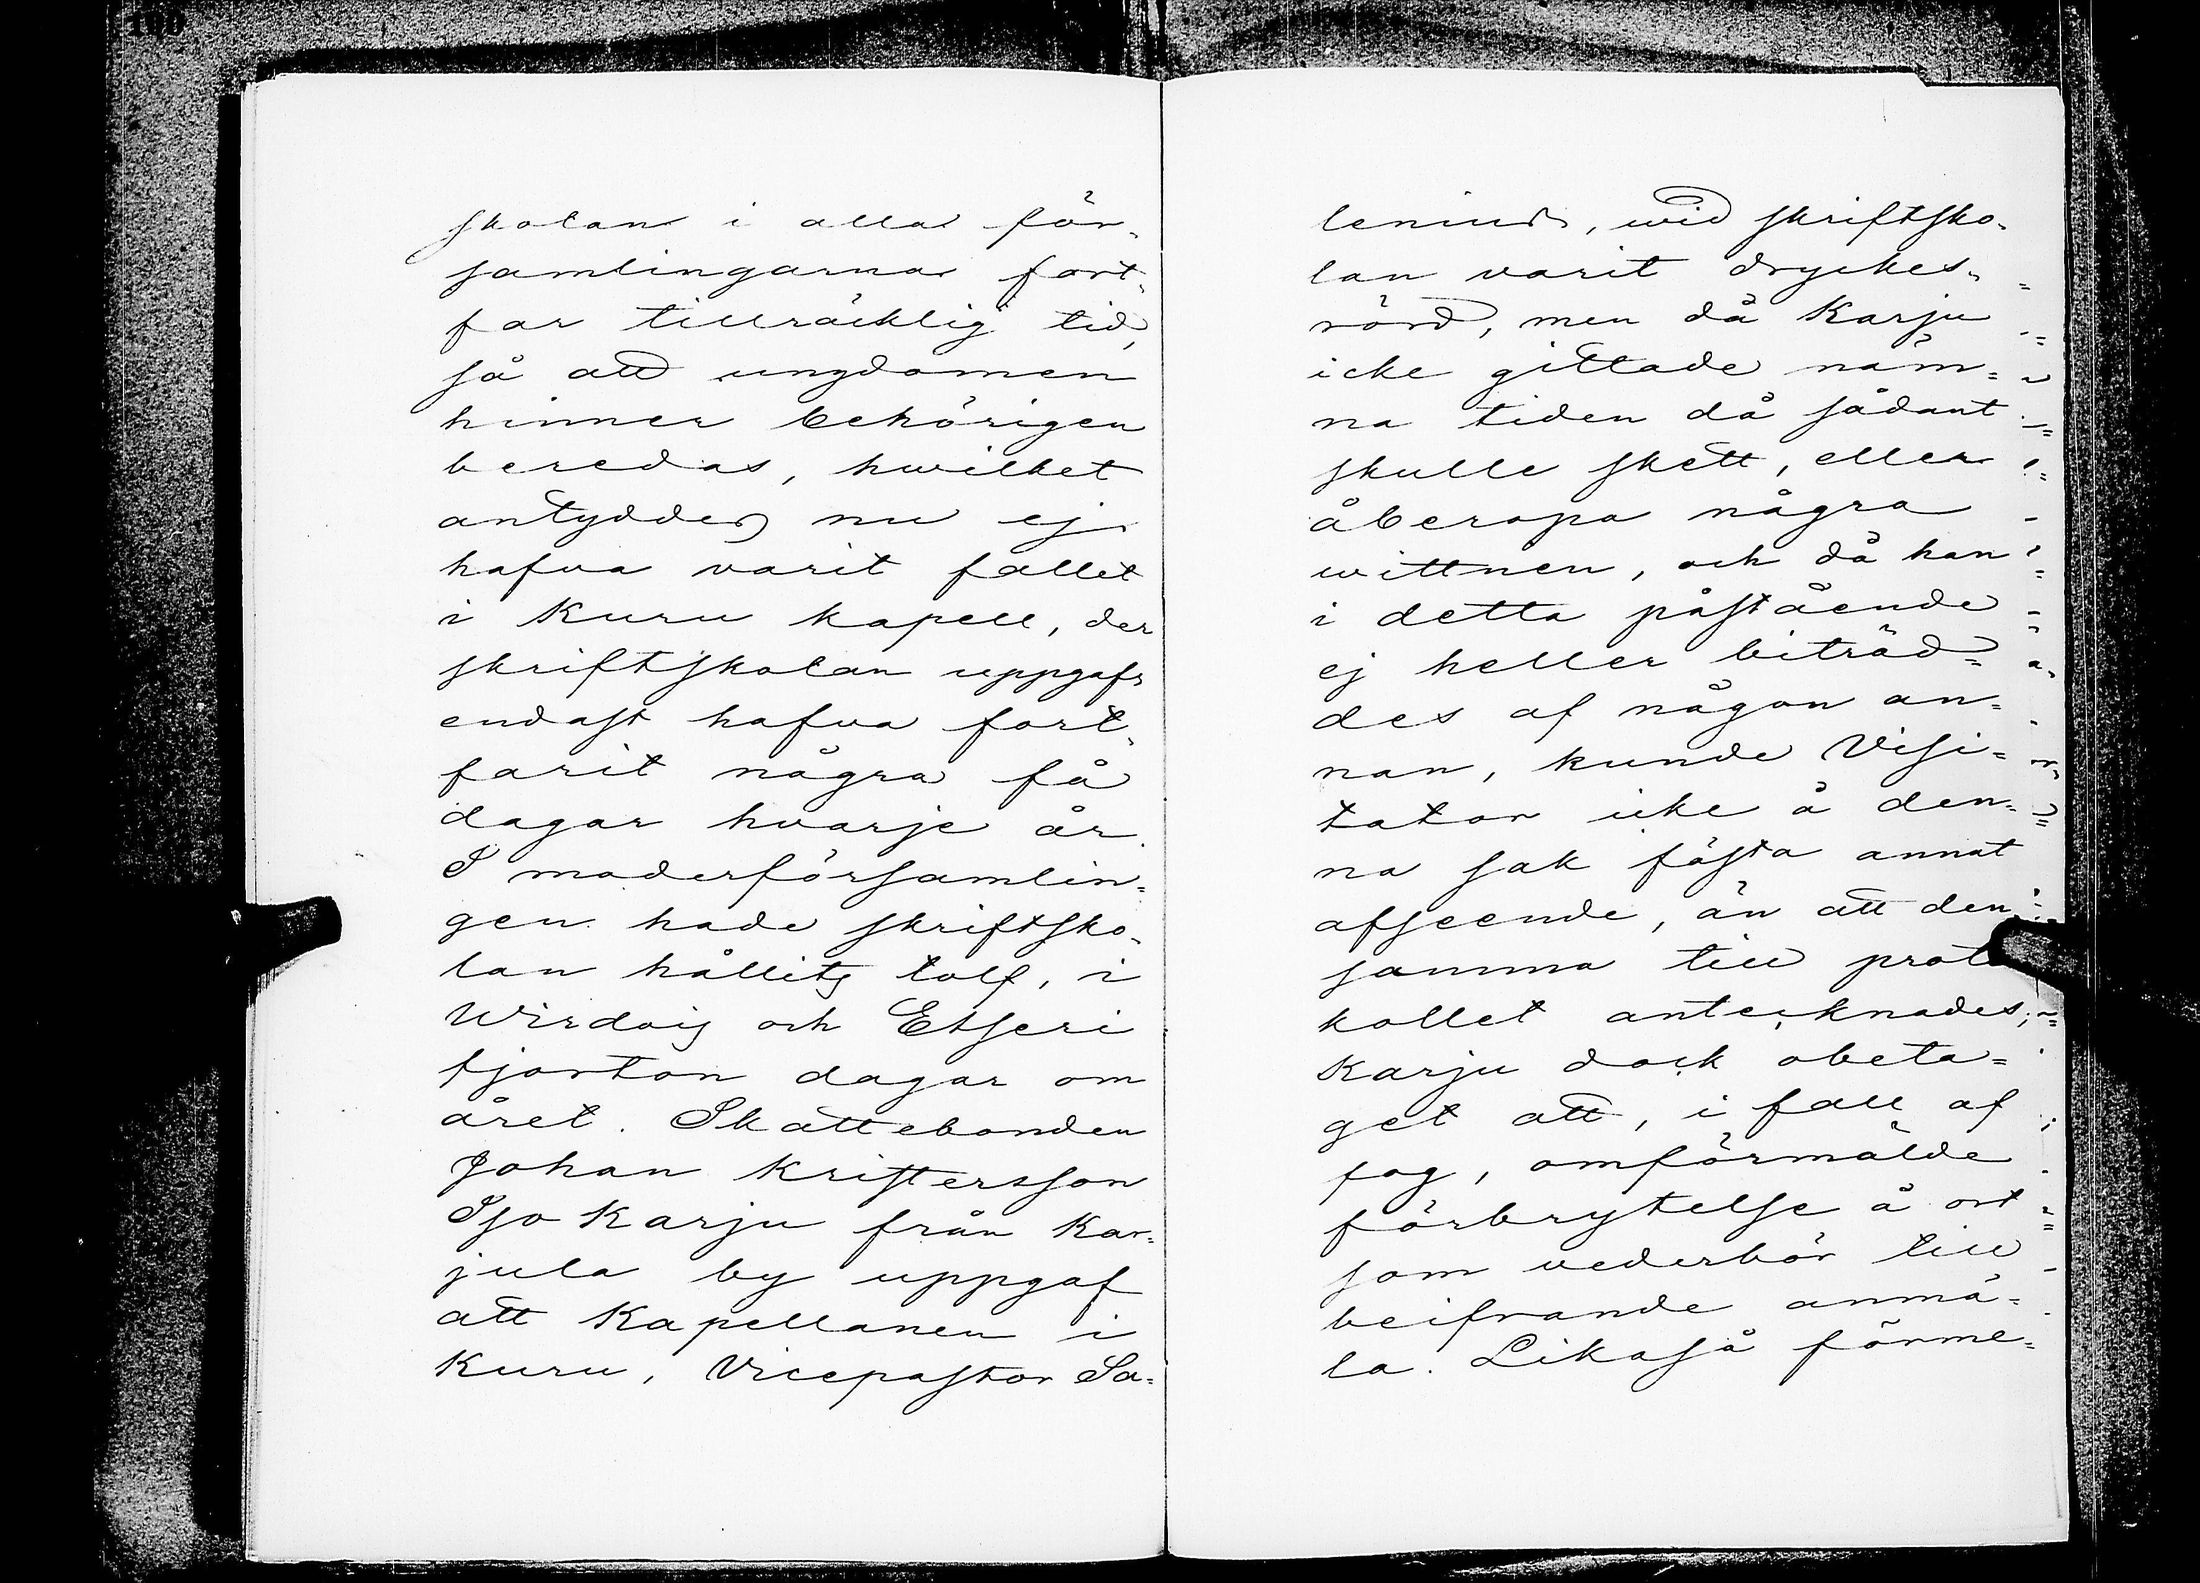 skolan i alla för-
samlingarna fort-
far tillräcklig tid,
så att ungdomen
hinner behörigen
beredas, hwilket
antyddes nu ej
hafva varit fallet
i Kuru kapell, der
skriftskolan uppgafs
endast hafva fort-
farit några få
dagar hvarje år.
I moderförsamlin-
gen hade skriftsko-
lan hållits tolf, i
Wirdois och Etseri
fjorton dagar om
året. Skattebonden
Johan Kristersson
Iso Karju från Kar-
jula by uppgaf
att Kapellanen i
Kuru, Vicepastor Sa-
lenius, wid skriftsko-
lan varit dryckes-
rörd, men då Karju
icke gittade näm-
na tiden då sådant
skulle skett, eller
åberopa några
wittnen, och då han
i detta påstående
ej heller biträd-
des af någon an-
nan, kunde Visi-
tator icke å den-
na sak fästa annat
afseende, än att den
samma till proto
kollet antecknades;
Karju dock obeta-
get att, i fall af
fog, omförmälde
förbrytelse å ort
som vederbör till
beifrande anmä-
la. Likaså förme-